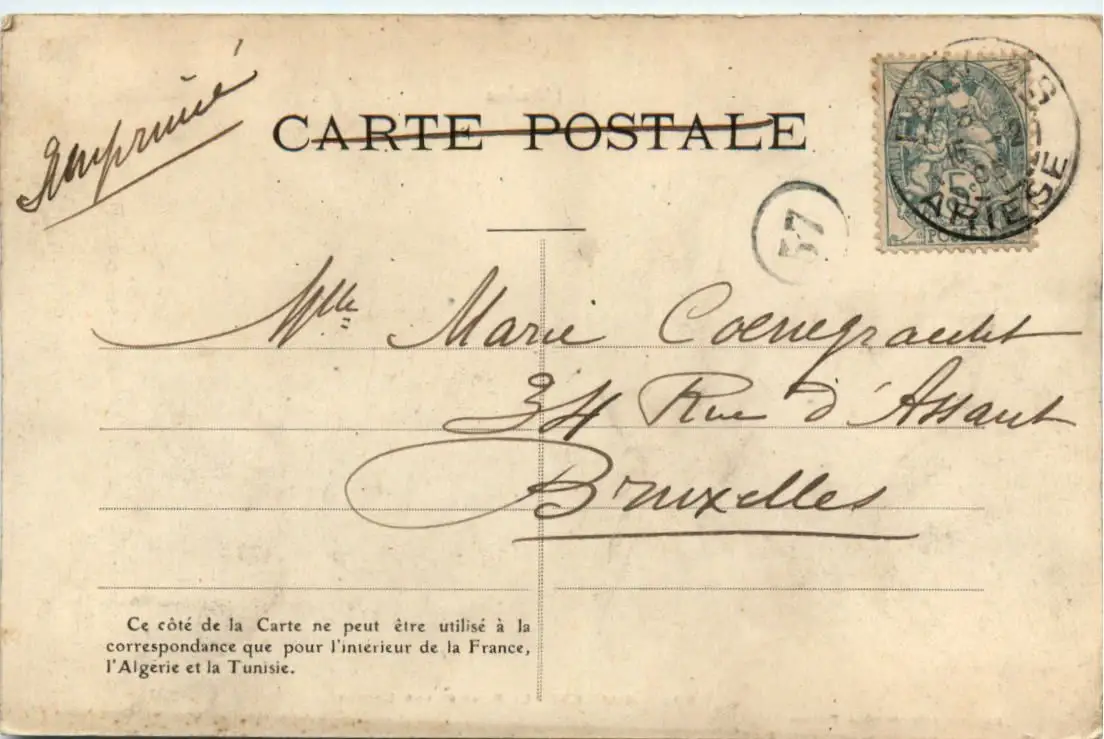 Imprimé
CARTE POSTALE
ARIEGE
5c
POSTES
57
Mlle Marie Coenegracht
34 Rue d'Assaut
Bruxelles
Ce côté de la Carte ne peut être utilisé à la
correspondance que pour l'intérieur de la France,
l'Algérie et la Tunisie.